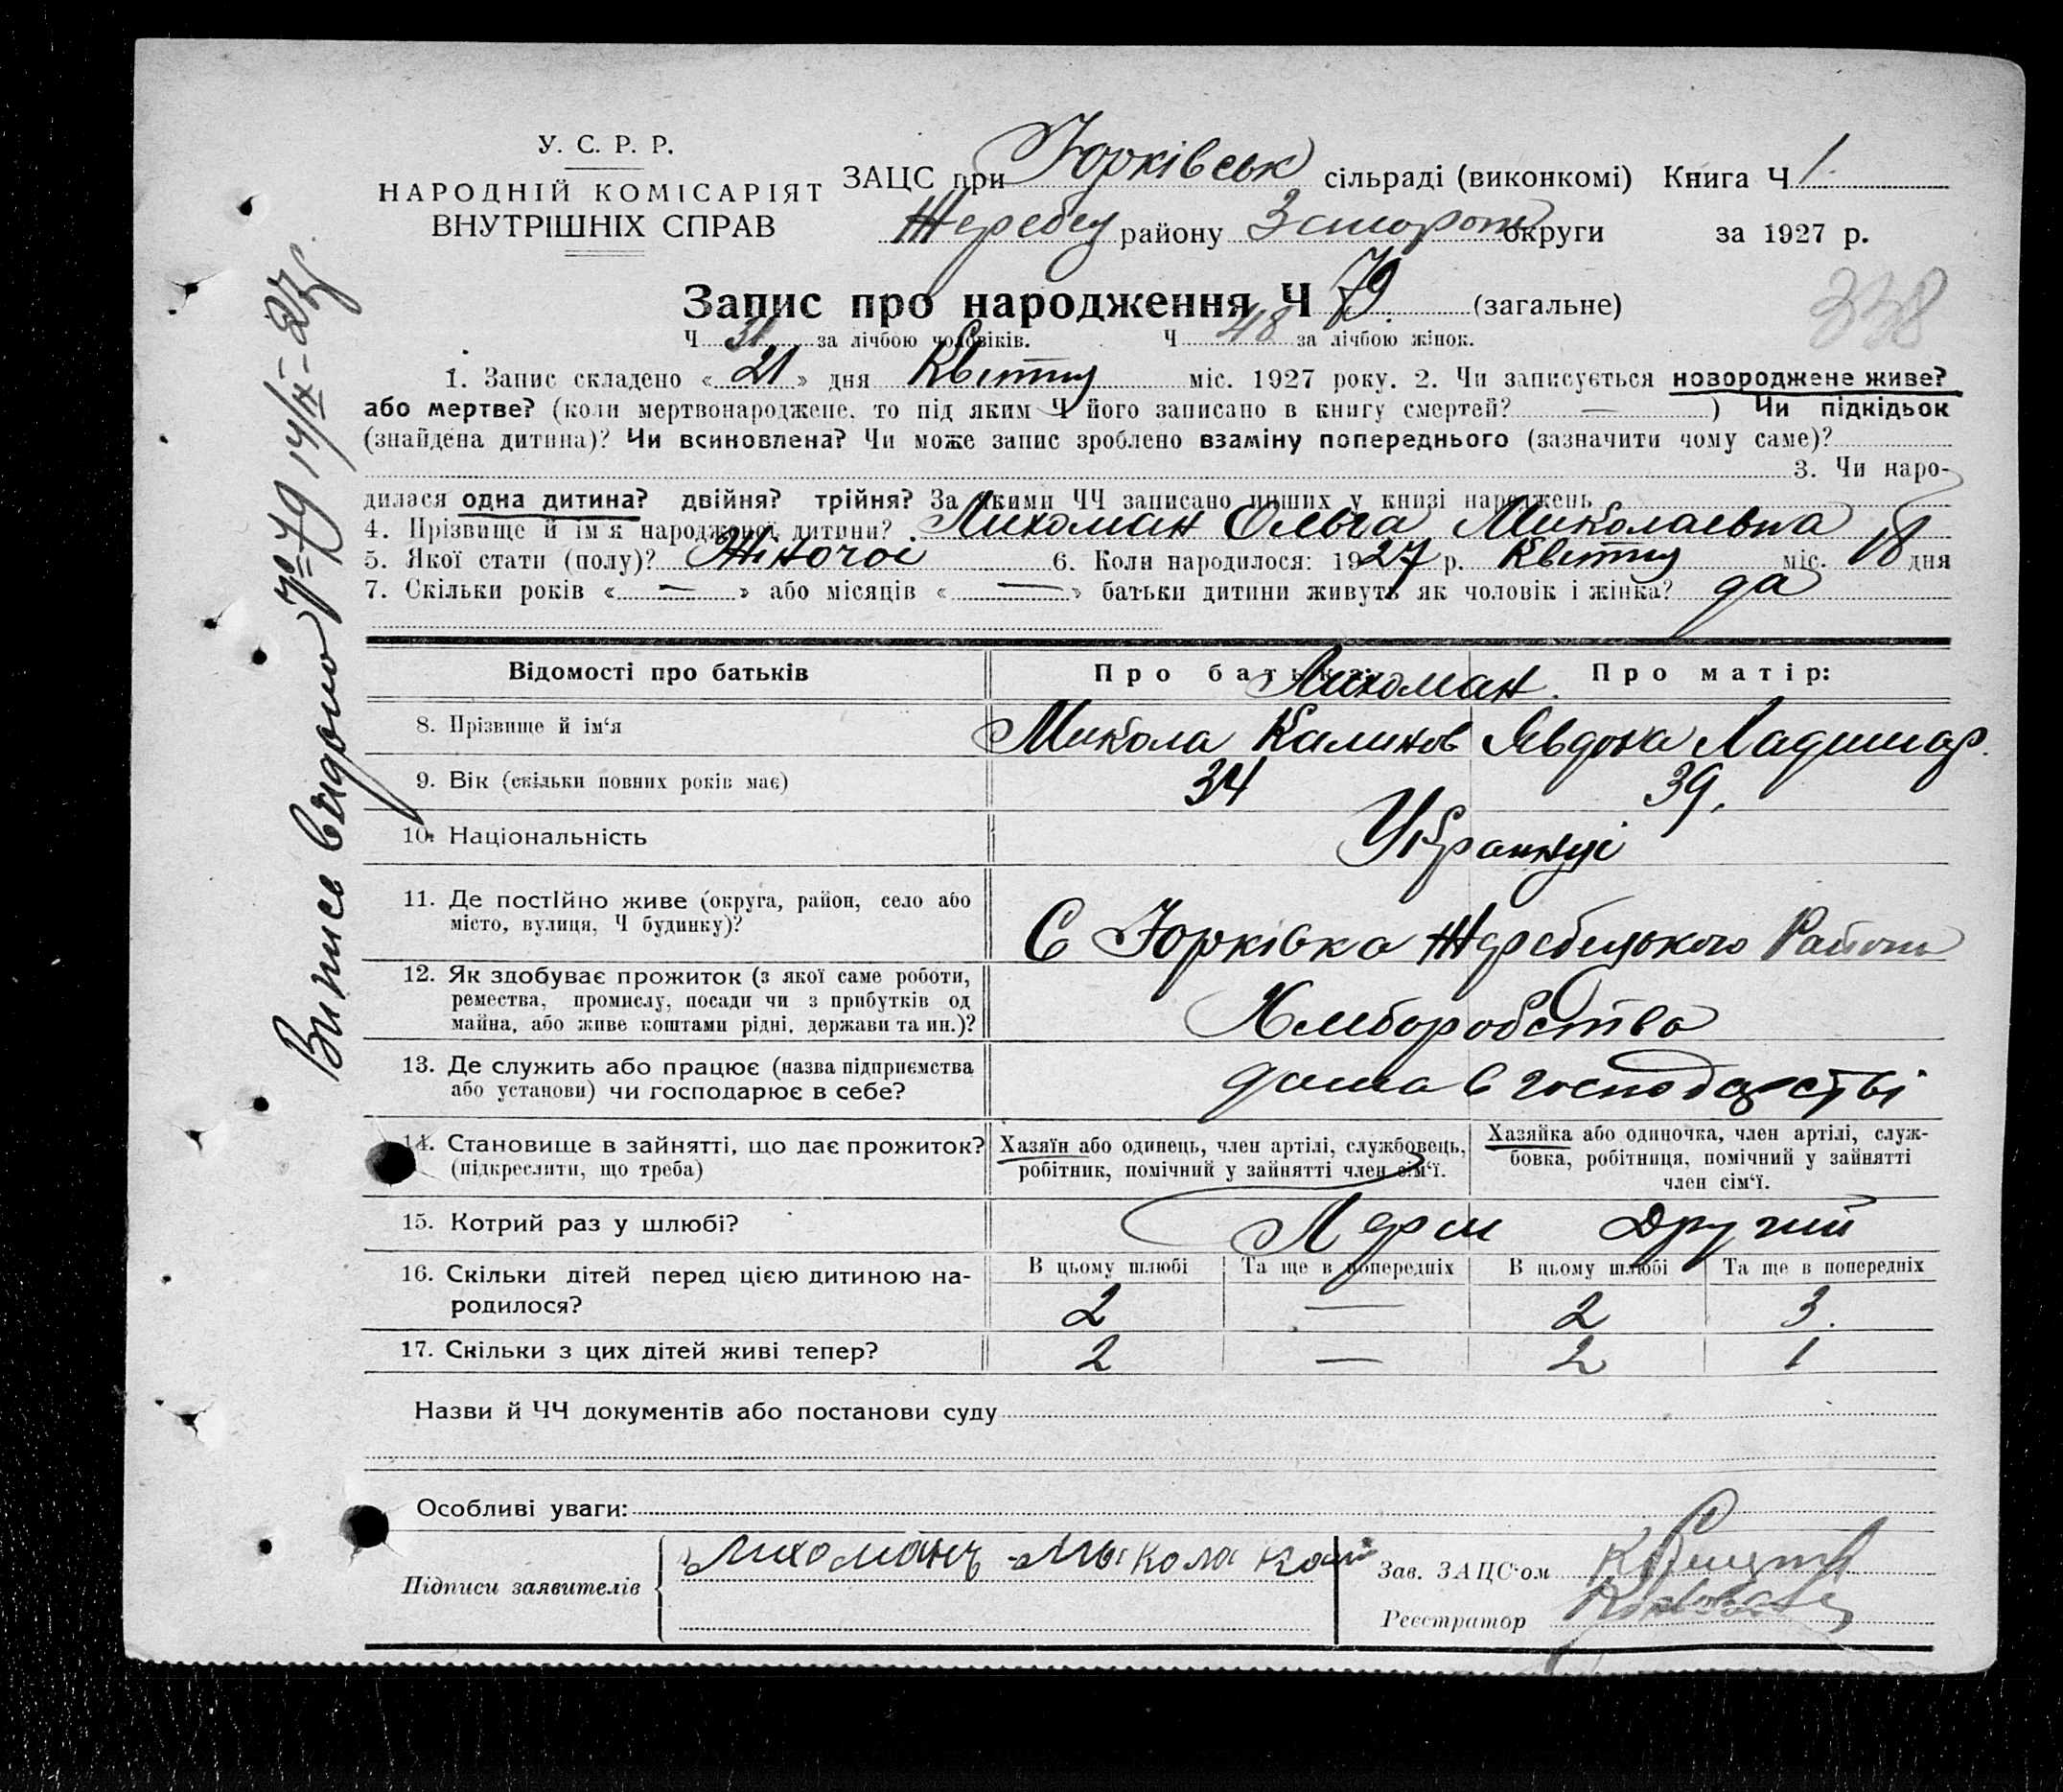 У. С. Р. Р.
НАРОДНІЙ КОМІСАРІЯТ
ВНУТРІШНІХ СПРАВ
ЗАЦС при Юрківськ сільраді (виконкомі) Книга Ч 1.
Жеребец району Запорож округи за 1927 р.
Запис про народження Ч 79. (загальне)
338
Ч 31 за лічбою чоловіків. Ч 48 за лічбою жінок.
1. Запис складено « 21 » дня Квітня міс. 1927 року. 2. Чи записується новороджене живе?
або мертве? (коли мертвонароджене, то під яким Ч його записано в книгу смертей? — ) Чи підкідьок
(знайдена дитина)? Чи всиновлена? Чи може запис зроблено взаміну попереднього (зазначити чому саме)?
3. Чи наро-
дилася одна дитина? двійня? трійня? За якими ЧЧ записано інших у книзі народжень
4. Прізвище й ім'я народженої дитини? Лихоман Ольга Миколаевна
5. Якої стати (полу)? Жіночоі 6. Коли народилося: 1927 р. Квітня міс. 18 дня
7. Скільки років « — » або місяців « — » батьки дитини живуть як чоловік і жінка? да
Відомості про батьків Про батька: Про матір:
Лихоман.
8. Прізвище й ім'я Микола Калинов Явдоха Ладишар.
9. Вік (скільки повних років має) 34 39.
10. Національність Українці
11. Де постійно живе (округа, район, село або
місто, вулиця, Ч будинку)?
С Юрківка Жеребецького Району
12. Як здобуває прожиток (з якої саме роботи,
ремества, промислу, посади чи з прибутків од
майна, або живе коштами рідні, держави та ин.)?
Хлиборобство
13. Де служить або працює (назва підприємства
або установи) чи господарює в себе?
дома в господарстві
14. Становище в зайнятті, що дає прожиток?
(підкреслити, що треба)
Хазяїн або одинець, член артілі, службовець,
робітник, помічний у зайнятті член сім'ї.
Хазяйка або одиночка, член артілі, служ-
бовка, робітниця, помічний у зайнятті
член сім'ї.
15. Котрий раз у шлюбі? Перш Другий
16. Скільки дітей перед цією дитиною на-
родилося?
В цьому шлюбі Та ще в попередніх В цьому шлюбі Та ще в попередніх
2 — 2 3.
17. Скільки з цих дітей живі тепер? 2 — 2 1
Назви й ЧЧ документів або постанови суду
Особливі уваги:
Підписи заявителів Лихоманъ Мыкола Кал
Зав. ЗАЦС'ом
Реєстратор
Випись видано № 79 14/IX-27